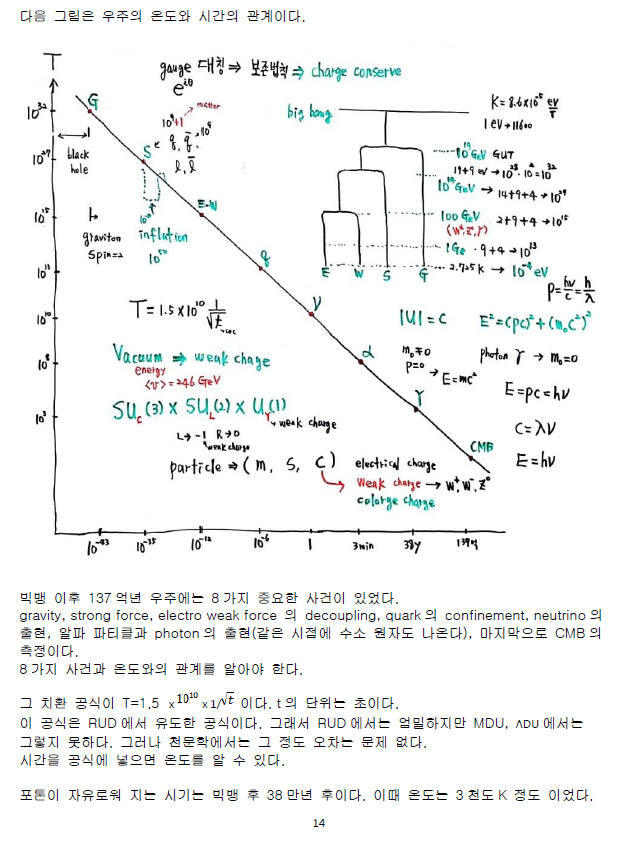 다음 그림은 우주의 온도와 시간의 관계이다.
T
gauge 대칭 ⇒ 보존법칙 ⇒ charge conserve
e^{iθ}
10^{32}
G
10^9+1 → matter
q, q̄ · 10^9
l, l̄
big bang
K = 8.6×10^{-5} eV/T
1 eV → 11600
10^{27}
black hole
S
10^{19} GeV GUT
19+9 eV → 10^{28} · 10^4 = 10^{32}
10^{14} GeV → 14+9+4 → 10^{27}
10^{15}
graviton
spin=2
inflation
10^{50}
E-W
100 GeV 2+9+4 → 10^{15}
(W^±, Z°, γ)
1 Ge · 9+4 → 10^{13}
E W S G
2.725 K → 10^{-4} eV
10^{13}
q
P = hν/c = h/λ
T = 1.5×10^{10} 1/√t → sec
10^{10}
ν
|U| = C E² = (pc)² + (m₀c²)²
Vacuum ⇒ weak chage
energy
<v> = 246 GeV
10^8
α
m₀≠0
P=0 → E=mc²
photon γ → m₀=0
E = pc = hν
SU_C(3) × SU_L(2) × U_Y(1)
→ weak charge
10^3
γ
C = λν
L → -1 R → 0
weak charge
CMB
E = hν
particle ⇒ (m, S, C) electrical charge
Weak charge → W⁺, W⁻, Z°
colorge charge
10^{-43} 10^{-35} 10^{-12} 10^{-6} 1 3min 38y 137억
빅뱅 이후 137 억년 우주에는 8 가지 중요한 사건이 있었다.
gravity, strong force, electro weak force 의 decoupling, quark 의 confinement, neutrino 의
출현, 알파 파티클과 photon 의 출현(같은 시절에 수소 원자도 나온다), 마지막으로 CMB 의
측정이다.
8 가지 사건과 온도와의 관계를 알아야 한다.
그 치환 공식이 T=1.5 x10^{10} x 1/√t 이다. t 의 단위는 초이다.
이 공식은 RUD 에서 유도한 공식이다. 그래서 RUD 에서는 엄밀하지만 MDU, ΛDU 에서는
그렇지 못하다. 그러나 천문학에서는 그 정도 오차는 문제 없다.
시간을 공식에 넣으면 온도를 알 수 있다.
포톤이 자유로워 지는 시기는 빅뱅 후 38 만년 후이다. 이때 온도는 3 천도 K 정도 이었다.
14